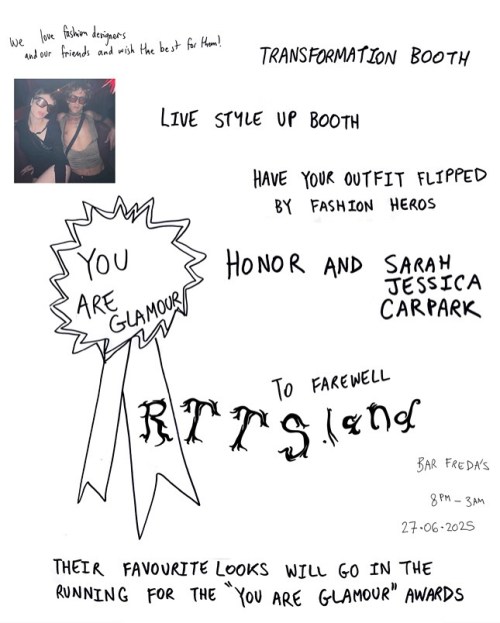 We love fashion designers
and our friends and wish the best for them!
TRANSFORMATION BOOTH
LIVE STYLE UP BOOTH
HAVE YOUR OUTFIT FLIPPED
BY FASHION HEROS
YOU
ARE
GLAMOUR
HONOR AND SARAH
JESSICA
CARPARK
TO FAREWELL
RTTSland
BAR FREDA'S
8PM - 3AM
27·06·2025
THEIR FAVOURITE LOOKS WILL GO IN THE
RUNNING FOR THE "YOU ARE GLAMOUR" AWARDS